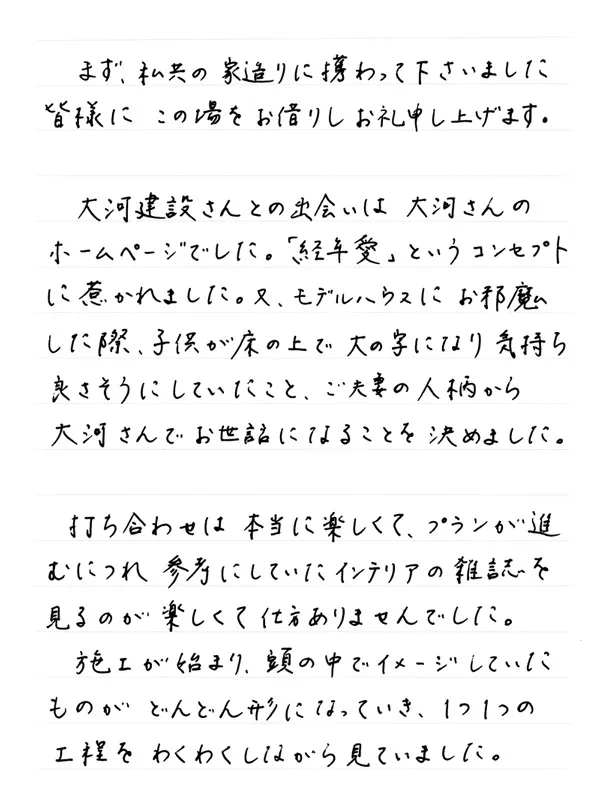 まず、私共の家造りに携わって下さいました
皆様に この場をお借りしお礼申し上げます。
大河建設さんとの出会いは 大河さんの
ホームページでした。「経年愛」というコンセプト
に惹かれました。又、モデルハウスに お邪魔
した際、子供が床の上で 大の字になり 気持ち
良さそうにしていたこと、ご夫妻の人柄から
大河さんでお世話になることを 決めました。
打ち合わせは 本当に楽しくて、プランが進
むにつれ 参考にしていたインテリアの雑誌を
見るのが楽しくて仕方ありませんでした。
施工が始まり、頭の中でイメージしていた
ものが どんどん形になっていき、1つ1つの
工程を わくわくしながら見ていました。